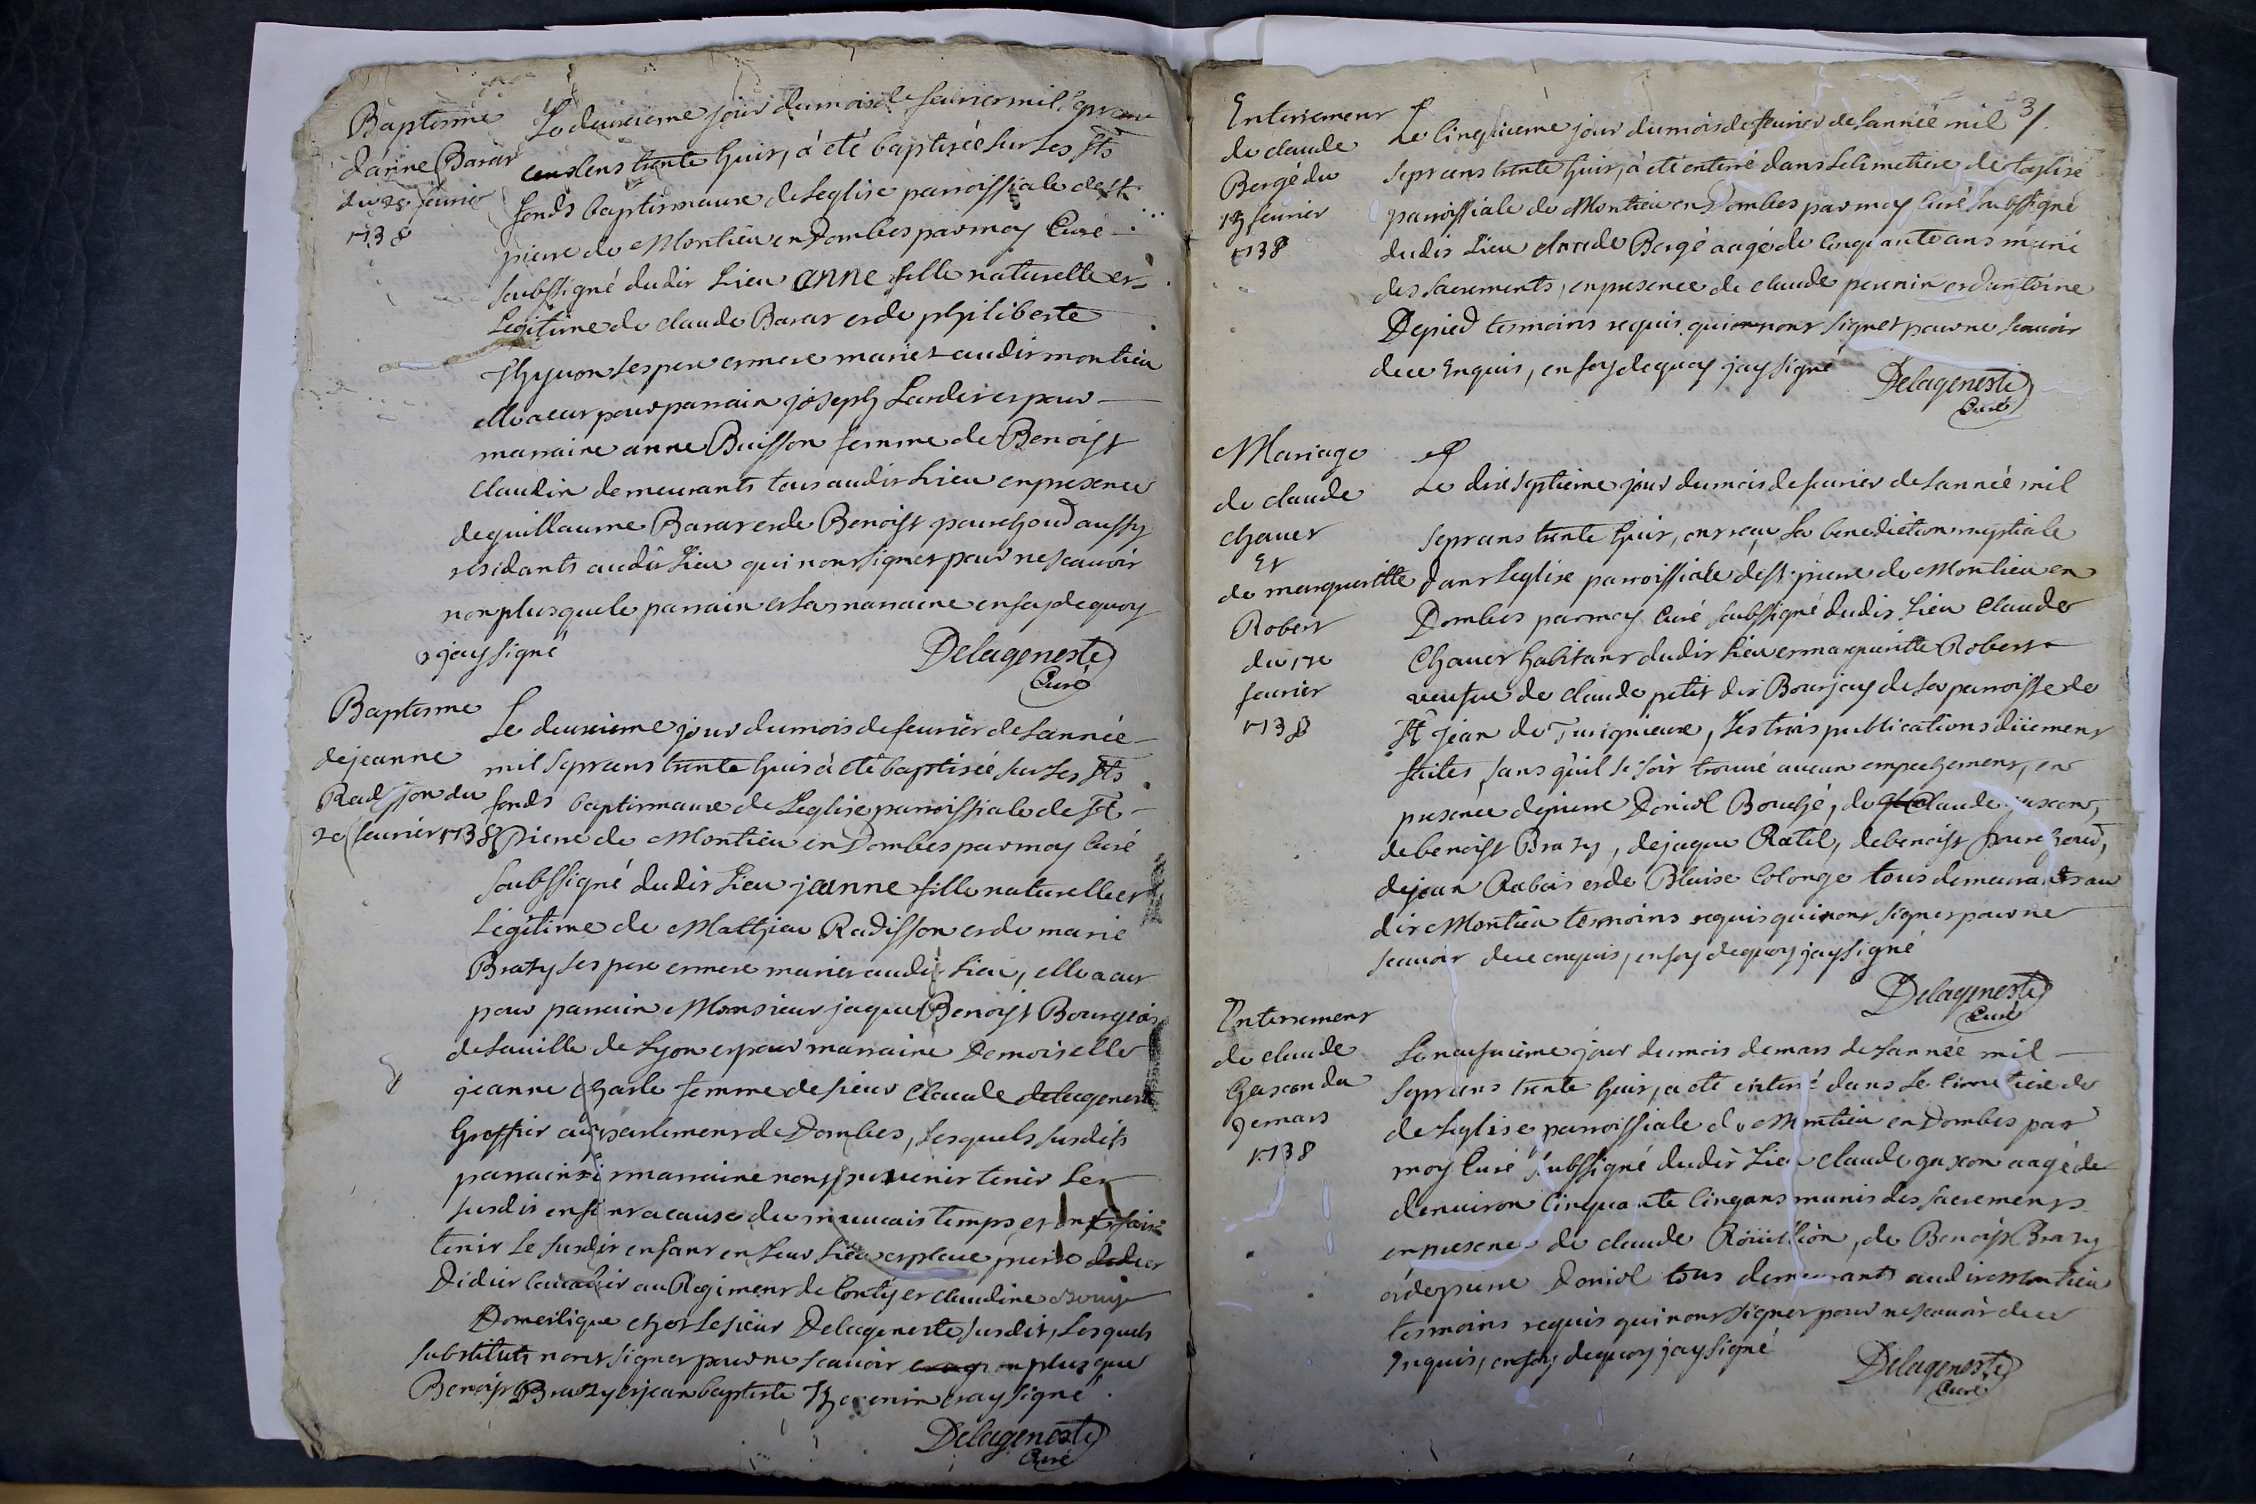 Baptesme
d'anne Barar
du 2e feurier
1738
Le deuxieme jour du mois de feurier mil sept
cens trente huit, à été baptisée sur les sts
fonds baptismaux de Leglise parroissiale de st
pierre de Montieu en Dombes par moy Curé
soubssigné dudit Lieu anne fille naturelle et
Legitime de claude Barar et de philiberte
Thyuon ses pere et mere mariez audit montieu
elle a eut pour parrain joseph Lardet et pour
marraine anne Buisson femme de Benoist
Claudin demeurants tous audit Lieu en presence
de guillaume Barar et de Benoist pourchoud aussy
residants audit Lieu qui n'ont signer pour ne scauoir
non plus que le parrain et la marraine en foy de quoy
j'ay signé
Delageneste
Curé
Baptesme
de jeanne
Radisson du
2e feurier 1738
Le deuxieme jour du mois de feurier de Lannée
mil sept cens trente huit à été baptisée sur les sts
fonds baptismaux de Leglise parroissiale de st
Pierre de Montieu en Dombes par moy Curé
soubssigné dudit Lieu jeanne fille naturelle et
Légitime de Mathieu Radisson et de marie
Brazy ses pere et mere mariez audit Lieu, elle a eut
pour parrain Monsieur jaque Benoist Bourgeois
de la ville de Lyon et pour marraine Demoiselle
jeanne Charle femme de sieur Claude delageneste
Greffier au parlement de Dombes, Lesquels susdits
parrain et marraine n'ont pu venir tenir Le
susdit enfant a cause du mauuais temps, et ont fait
tenir Le susdit enfant en Leur Lieu et place pierre
Didier au Regiment de Conty et claudine
Domestique chez Le sieur Delageneste susdit, Lesquels
substituts n'ont signer pour ne scauoir non plus que
Benoist Brazy et jean baptiste Theuenin et ay signé
Delageneste
Curé
3/.
Enterrement
de claude
Bergé du
feurier
1738
Le cinquieme jour du mois de feurier de Lannée mil
sept cens trente huit, à été enterré dans Le Cimetiere de Leglise
parroissiale de Montieu en Dombes par moy Curé soubssigné
dudit Lieu claude Bergé aagé de Cinquante ans muni
des sacrements, en presence de claude peronin et d'antoine
Depied tesmoins requis qui n'ont signer pour ne scauoir
de ce Enquis, en foy de quoy jay signé
Delageneste
Curé
Mariage
de claude
chauet
Et
de margueritte
Robert
du 17e
feurier
1738
Le dixseptieme jour du mois de feurier de Lannée mil
sept cens trente huit, ont receu La benediction nuptiale
dans Leglise parroissiale de st pierre de Montieu en
Dombes par moy Curé soubssigné dudit Lieu Claude
Chauet habitant dudit Lieu et marguerite Robert
veufue de claude petit dit Bourjay de La parroisse de
st jean de Turigneux, Les trois publications düement
faites, sans qu'il se soit trouué aucun empechement, en
presence de pierre Doniol Bouché, de Claude gascon,
de benoist Brazy, de jaque Ratel, de benoist pourchoud,
de jean Rabais et de Blaise Colonge tous demeurants au
dit Montieu temoins requis qui n'ont signer pour ne
scauoir de ce enquis, en foy de quoy jay signé
Delageneste
Curé
Enterrement
de claude
Gascon du
9e mars
1738
Le neufuieme jour du mois de mars de Lannée mil
sept cens trente huit, a été enterré dans Le cimetiere de
de Leglise parroissiale de Montieu en Dombes par
moy Curé soubssigné dudit Lieu claude gascon aagé de
denuiron Cinquante Cinq ans munis des sacrements
en presence de claude Roüillion, de Benoist Brazy
et de pierre Doniol tous demeurants audit Montieu
tesmoins requis qui n'ont signer pour ne scauoir de ce
Inquis, en foy de quoy jay signé
Delageneste
Curé